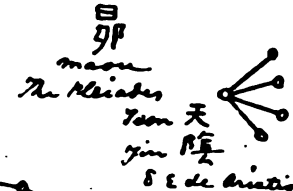 昴
maou
The Pleiades
Teen 天
Yin 陰
δ ε de Arietis